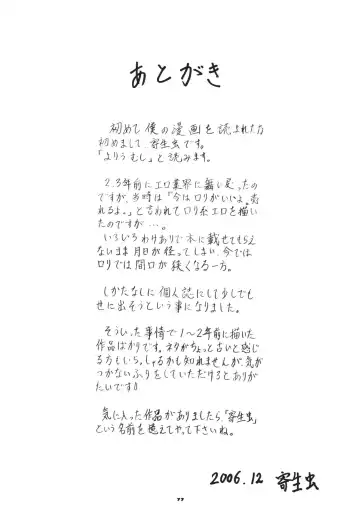 あとがき
初めて僕の漫画を読まれた方
初めまして、寄生虫です。
「よりうむし」と読みます。
2、3年前にエロ業界に舞い戻ったの
ですが、当時は「今はロリがいいよ。売
れるよ。」と言われてロリ系エロを描い
たのですが…。
いろいろわけありで本に載せてもらえ
ないまま月日が経ってしまい、今では
ロリでは間口が狭くなる一方。
しかたなしに個人誌にして少しでも
世に出そうという事になりました。
そういった事情で1〜2年前に描いた
作品ばかりです。ネタがちょっと古いと感じ
る方もいらっしゃるかも知れませんが、気が
つかないふりをしていただけるとありが
たいです!!
気に入った作品がありましたら、「寄生虫」
という名前を憶えてやって下さいね。
2006.12 寄生虫
77